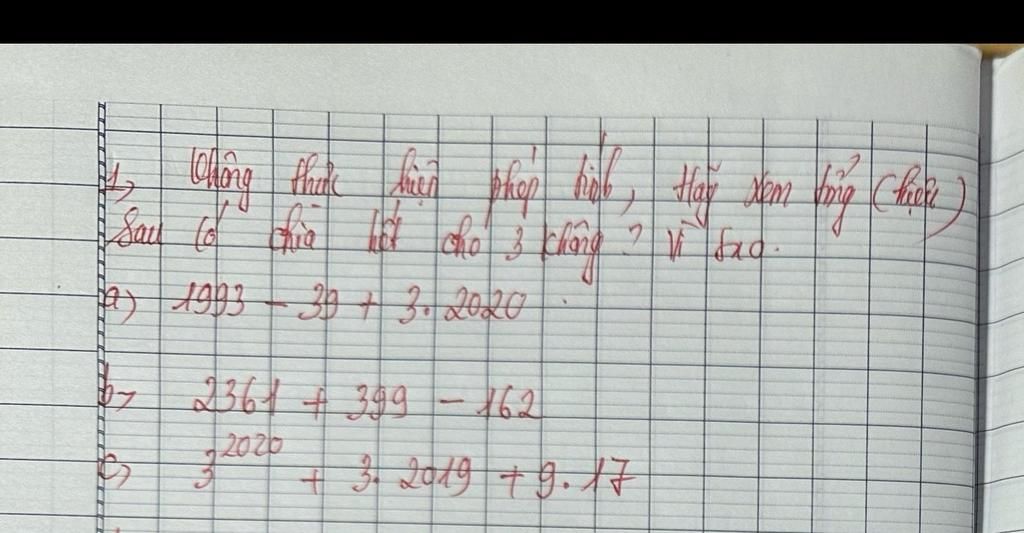 1, Không thực hiện phép tính, Hãy xem tổng (hiệu)
Sau có chia hết cho 3 không? Vì sao.
a) 1993 - 39 + 3. 2020
b, 2361 + 399 - 162
c, 3^2020 + 3. 2019 + 9. 17